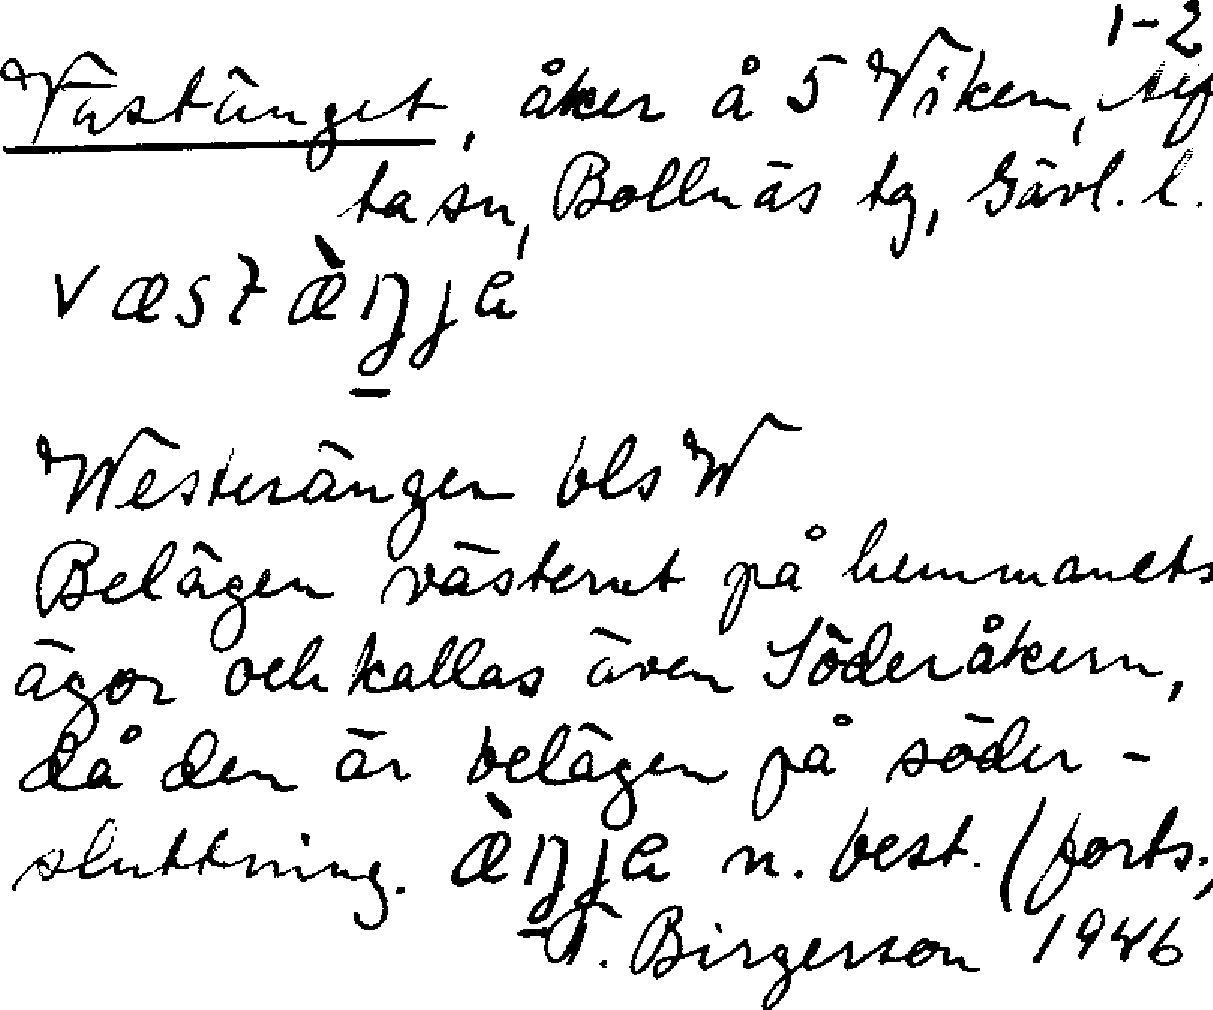 1-2
Västänget, åker å 5 Viken, Alf
ta sn, Bollnäs tg, Gävl. l.
væstæ̀ŋja
Westerängen bls W
Belägen västerut på hemmanets
ägor och kallas även Söderåkern,
då den är belägen på söder-
sluttning. æ̀ŋja n. best. (forts.)
T. Birgerson 1946